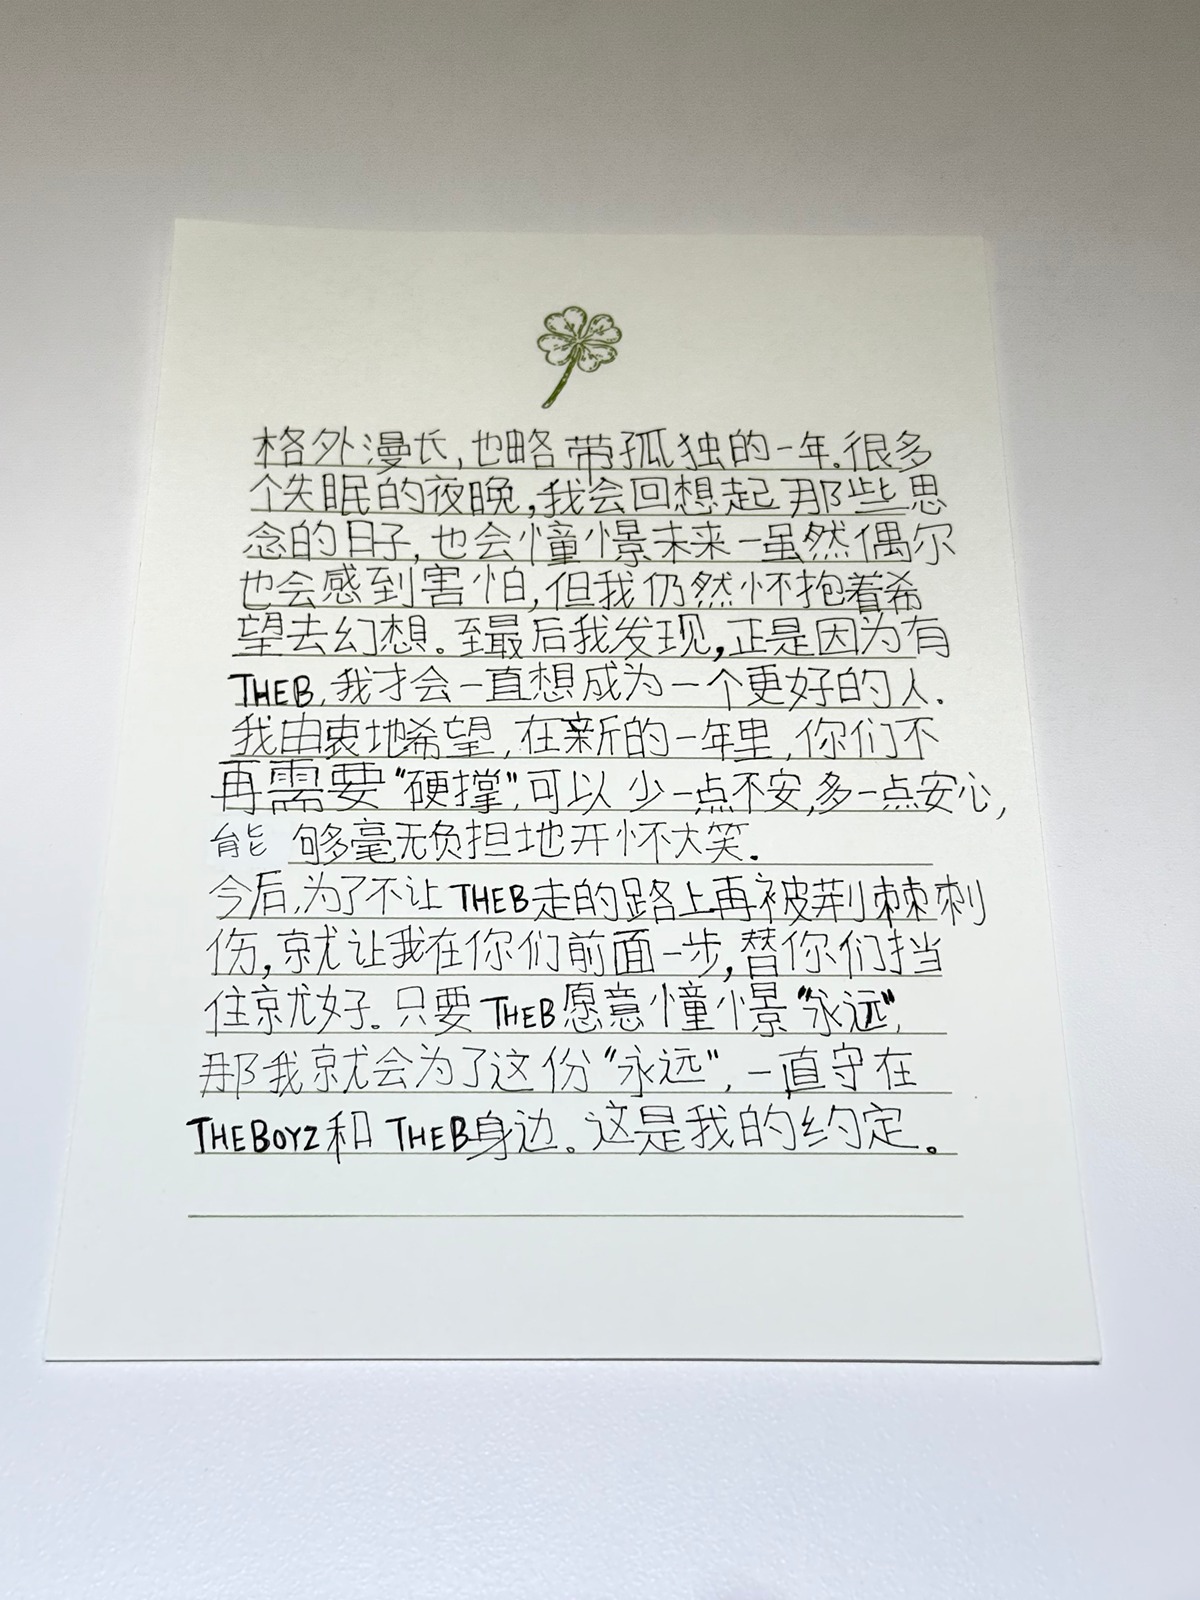 格外漫长,也略带孤独的一年.很多
个失眠的夜晚,我会回想起那些思
念的日子,也会憧憬未来-虽然偶尔
也会感到害怕,但我仍然怀抱着希
望去幻想。至最后我发现,正是因为有
THEB,我才会一直想成为一个更好的人.
我由衷地希望,在新的一年里,你们不
再需要“硬撑”,可以少一点不安,多一点安心,
能够毫无负担地开怀大笑.
今后,为了不让THEB走的路上再被荆棘刺
伤,就让我在你们前面一步,替你们挡
住就好。只要THEB愿意憧憬“永远”,
那我就会为了这份“永远”,一直守在
THEBOYZ和THEB身边。这是我的约定。